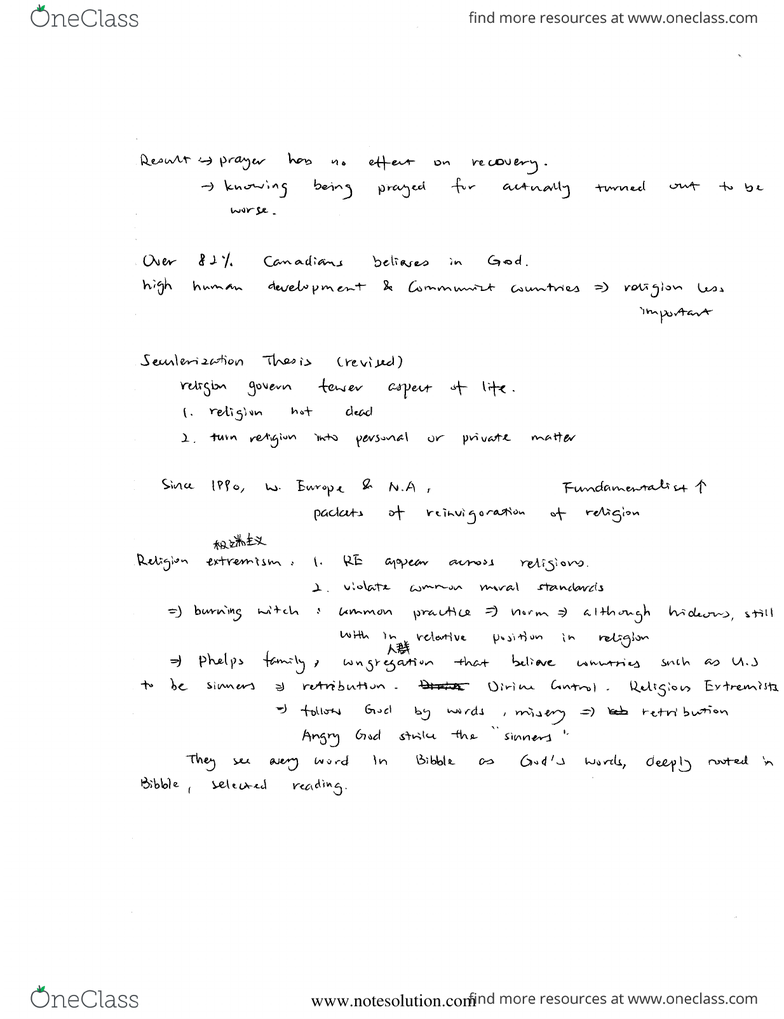 OneClass
find more resources at www.oneclass.com
Result → prayer has no effect on recovery.
→ knowing being prayed for actually turned out to be
worse.
Over 82% Canadians believes in God.
high human development & Communist countries ⇒ religion less
important
Seculerization Thesis (revised)
religion govern fewer aspect of life.
1. religion not dead
2. turn religion into personal or private matter
Since 1990, W. Europe & N.A, Fundamentalist ↑
packets of reinvigoration of religion
极端主义
Religion extremism: 1. RE appear across religions.
2. violate common moral standards
⇒ burning witch: common practice ⇒ norm ⇒ although hideous, still
with in relative position in religion
人群
⇒ Phelps family, congregation that believe countries such as U.S
to be sinners ⇒ retribution. Divine Control. Religious Extremists
⇒ follow God by words, misery ⇒ retribution
Angry God strike the "sinners".
They see every word in Bibble as God's words, deeply rooted in
Bibble, selected reading.
OneClass
www.notesolution.com
find more resources at www.oneclass.com